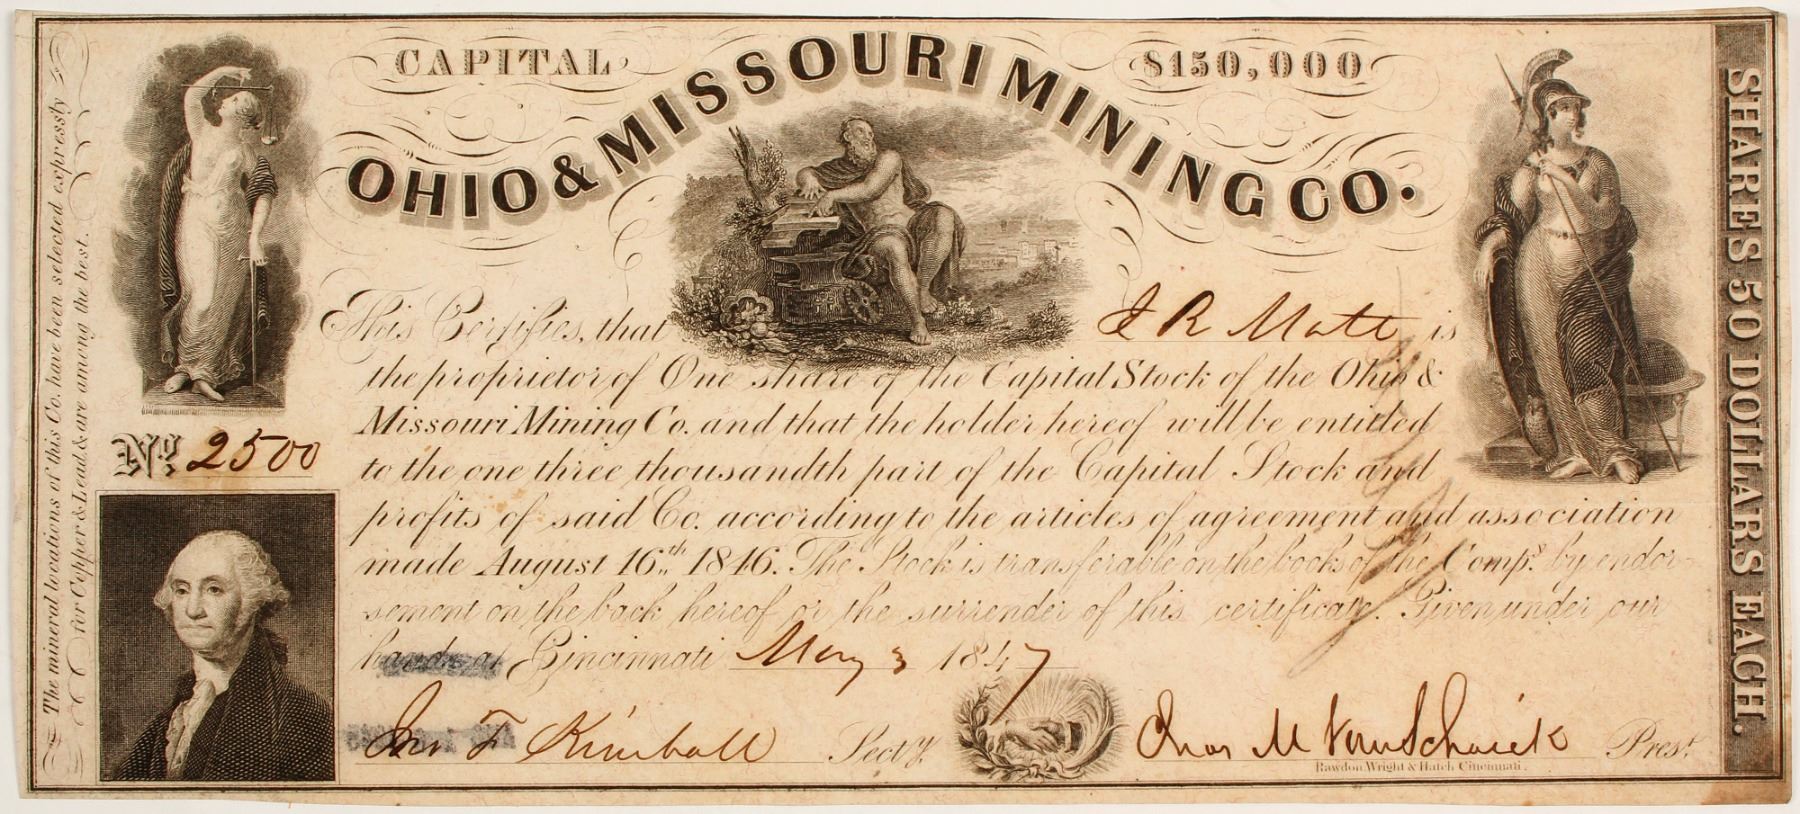 CAPITAL $150,000
OHIO & MISSOURI MINING CO.
This Certifies, that J R Matt is
the proprietor of One share of the Capital Stock of the Ohio &
Missouri Mining Co. and that the holder hereof will be entitled
to the one three thousandth part of the Capital Stock and
profits of said Co. according to the articles of agreement and association
made August 16th 1846. The Stock is transferable on the books of the Compy. by endor-
sement on the back hereof or the surrender of this certificate. Given under our
hands at Cincinnati May 3 1847
Jno F Kimball Secty. Chas M VanSchaick Prest.
Rawdon Wright & Hatch Cincinnati.
No. 2500
The mineral locations of this Co. have been selected expressly
for Copper & Lead & are among the best.
SHARES 50 DOLLARS EACH.